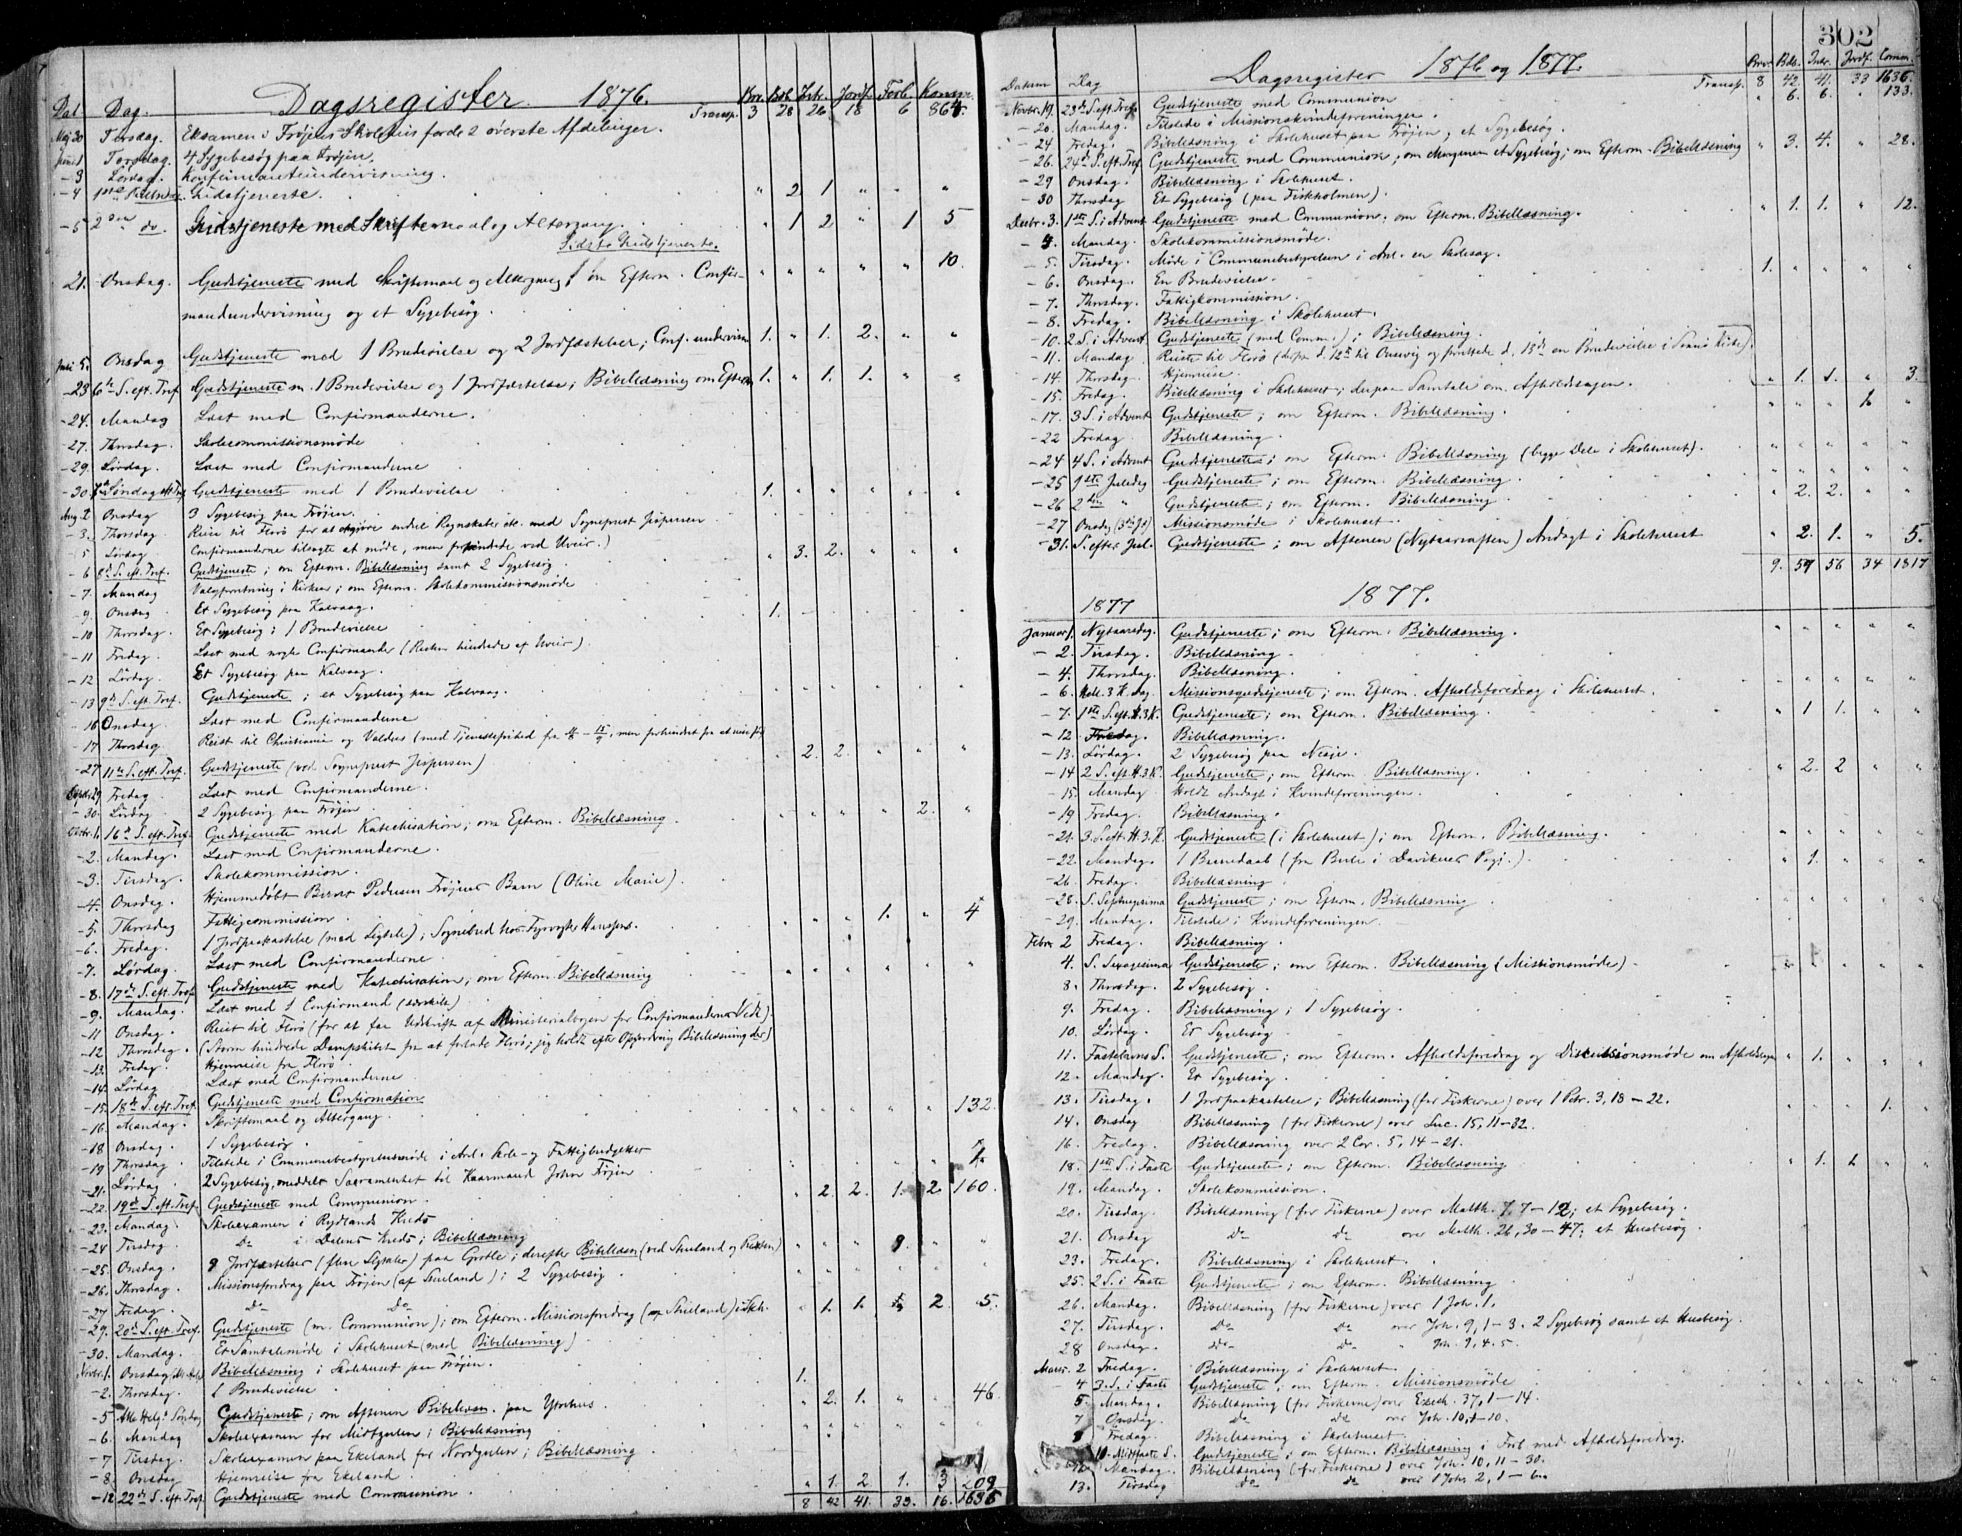 Dagsregister 1876.
Dat. Dag. Brv. Bsk. Intr. Jordf. Forl. Komm.
Transp. 3 28 26 18 6 864
Maj 30 Tirsdag. Eksamen i Frøjens Skolehus for de 2 øverste Afdelinger.
Juni 1 Torsdag. 4 Sygebesøg paa Frøjen.
- 3 Lørdag. Konfirmantundervisning.
- 4 1ste Pintsedag Gudstjeneste. " 2 1 " " "
- 5 2den do. Gudstjeneste med Skriftemaal og Altergang. " 1 2 " 1 5
Sidste Gudstjeneste.
21. Onsdag. Gudstjeneste med Skriftemaal og Altergang; om Efterm. Confir- " " " " " 10.
mandundervisning og et Sygebesøg.
Juli 5. Onsdag Gudstjeneste med 1 Brudevielse og 2 Jordfæstelser; Conf. undervisn. 1. " 1. 2. " "
- 23 6te S. eft. Tref. Gudstjeneste m. 1 Brudevielse og 1 Jordfæstelse; Bibellæsning om Efterm. 1. " 1. 1. " "
- 24. Mandag Læst med Confirmanderne.
- 27. Thorsdag. Skolecommissionsmøde
- 29. Lørdag. Læst med Confirmanderne
- 30. 7de Søndag eft. Tref. Gudstjeneste med 1 Brudevielse 1. " " " " "
Aug. 2 Onsdag 3 Sygebesøg paa Frøjen.
- 3. Thorsdag Reise til Florø for at afgjøre endel Regnskaber etc. med Sogneprest Jespersen
- 5 Lørdag Confirmanderne tilsagte at møde, men forhindrede ved Uveir.)
- 6 8de S. eft. Tref. Gudstjeneste; om Efterm. Bibellæsning samt 2 Sygebesøg. " 3. 2. " " "
- 7. Mandag Valgforretning i Kirken; om Efterm. Skolekommissionsmøde
- 9 Onsdag Et Sygebesøg paa Kalvaag.
- 10 Thorsdag. Et Sygebesøg; 1 Brudevielse 1.
- 11 Fredag. Læst med nogle Confirmander (Resten hindrede af Uveir)
- 12 Lørdag. Et Sygebesøg paa Kalvaag.
- 13 9de S. eft. Tref. Gudstjeneste; et Sygebesøg paa Kalvaag.
- 16 Onsdag. Læst med Confirmanderne
- 17 Thorsdag. Reist til Christiania og Valders (med Tjenestefrihed
- 27 11te S. eft. Tref. Gudstjeneste (ved Sogneprest Jespersen) 2. 2. " " "
29 Fredag. Læst med Confirmanderne.
- 30. Lørdag. 2 Sygebesøg paa Frøjen
Octbr. 1. 16de S. eft. Tref. Gudstjeneste med Katechisation; om Efterm. Bibellæsning. 2.
- 2. Mandag. Læst med Confirmanderne.
- 3. Tirsdag. Skolekommission.
- 4. Onsdag. Hjemmedøbt Bernt Pedersen Frøjens Barn (Oline Marie).
- 5. Thorsdag Fattigcommission.
- 6. Fredag. 1 Jordpaakastelse (med Ligtale); Sognebud hos Fyrvogter Hansens. 1. " 4
- 7. Lørdag. Læst med Confirmanderne.
- 8. 17de S. eft. Tref. Gudstjeneste med Katechisation; om Efterm. Bibellæsning
- 9. Mandag. Læst med 1 Confirmand (særskilt)
- 11 Onsdag. Reist til Florø (for at faa Udskrift af Ministerialbogen for Confirmandernes Vedk.)
- 12 Thorsdag. (Storm hindrede Dampskibet fra at forlade Florø; jeg holdt efter Opfordring Bibellæsning der)
- 13. Fredag. Hjemreise fra Florø.
- 14. Lørdag Læst med Confirmanderne
- 15. 18de S. eft. Tref. Gudstjeneste med Confirmation
- 16. Mandag. Skriftemaal og Altergang. 132.
- 18 Onsdag. 1 Sygebesøg.
- 19 Thorsdag Tilstede i Communebestyrelsesmøde i Anl. Skole- og Fattigbudgetter
- 21. Lørdag. 2 Sygebesøg, meddelt Sacramentet til Kaarmand Johan Frøjen
- 22. 19de S. eft. Tref. Gudstjeneste med Communion. " 2. 2. 1. 2 160.
- 23. Mandag Skoleexamen i Rydlands Kreds
- 24 Tirsdag. Do i Dalens Kreds; Bibellæsning
- 25. Onsdag. 9 Jordfæstelser (flere Ligtaler) paa Grotle; derefter Bibellæsn. 9.
- 26. Thorsdag. Missionsforedrag paa Frøjen (af Skueland); 2 Sygebesøg.
- 27 Fredag. Do Do
- 29. 20de S. eft. Tref. Gudstjeneste (m. Communion); om Efterm. Missionsforedrag (af Skueland) i Skh. " 1. 1. 2. 5.
- 30. Mandag. Et Samtalemøde i Skolehuset (med Bibellæsning)
Novbr. 1. Onsdag Bibellæsning i Skolehuset paa Frøjen.
- 2. Thorsdag. 1 Brudevielse 1.
- 5 Alle Helg. Søndag Gudstjeneste; om Aftenen Bibellæsn. paa 2. 1. " " 46
- 6. Mandag Skoleexamen for Midtgulen; Bibellæsning
- 7 Tirsdag. Skoleexamen paa Ekeland for Nordgulen; Bibellæsning
- 8. Onsdag Hjemreise fra Ekeland.
- 12 22de S. eft. Tref. Gudstjeneste med Communion. " 1. 2 1. 3 209
8 42 41. 33. 16. 1636
302
Datum Dag Dagsregister 1876 og 1877. Brv. Bds. Intr. Jordf. Comm.
Transp. 8 42 41. 33 1636.
Novbr. 19. 23de S. eft. Tref. Gudstjeneste med Communion " 6. 6. " 133.
- 20. Mandag. Tilstede i Missionskvindeforeningen.
- 24 Fredag. Bibellæsning i Skolehuset paa Frøjen; et Sygebesøg.
- 26. 24de S. eft. Tref. Gudstjeneste med Communion; om Morgenen et Sygebesøg; om Efterm. Bibellæsning " 3. 4. " 28.
- 29 Onsdag. Bibellæsning i Skolehuset.
- 30 Thorsdag Et Sygebesøg (paa Fiskholmen).
Decbr. 3. 1ste S. i Advent Gudstjeneste med Communion; om Efterm. Bibellæsning. " 1. 1. " 12.
- 4. Mandag. Skolekommissionsmøde.
- 5. Tirsdag. Møde i Communebestyrelsen i Anl. en Skolesag.
- 6. Onsdag. En Brudevielse. 1. " " " "
- 7. Thorsdag. Fattigkommission.
- 8. Fredag. Bibellæsning i Skolehuset.
- 10. 2 S. i Advent Gudstjeneste (med Comm.); Bibellæsning.
- 11. Mandag Reiste til Florø (derfra d. 12te til og forrettede d. 13de en Brudevielse i Kirke).
- 14. Thorsdag. Hjemreise. " 1. 1. " 3.
- 15. Fredag. Bibellæsning i Skolehuset; derpaa Samtale om Afholdssagen.
- 17. 3 S. i Advent Gudstjeneste; om Efterm. Bibellæsning.
- 22 Fredag. Bibellæsning.
- 24 4 S. i Advent Gudstjeneste; om Efterm. Bibellæsning (begge Dele i Skolehuset).
- 25 1ste Juledag Gudstjeneste; om Efterm. Bibellæsning.
- 26 2den " Gudstjeneste; om Efterm. Bibellæsning. " 2. 2. " "
- 27 Onsdag (3die Jd) Missionsmøde i Skolehuset.
- 31. S. efter Jul. Gudstjeneste; om Aftenen (Nytaarsaften) Andagt i Skolehuset " 2. 1. " 5.
9. 59 56 34 1817
1877 1877.
Januar 1. Nytaarsdag. Gudstjeneste; om Efterm. Bibellæsning.
- 2. Tirsdag. Bibellæsning.
- 4. Thorsdag. Bibellæsning.
- 6. Hell. 3 K. dag. Missionsgudstjeneste; om Efterm. Afholdsforedrag i Skolehuset.
- 7. 1ste S. eft. H. 3 K. Gudstjeneste; om Efterm. Bibellæsning. " 1 1. " "
- 12. Fredag. Bibellæsning.
- 13. Lørdag. 2 Sygebesøg paa Nesje.
- 14 2 S. eft. H. 3 K. Gudstjeneste; om Efterm. Bibellæsning. " 2. 2 " "
- 15. Mandag Holdt Andagt i Kvindeforeningen.
- 19 Fredag. Bibellæsning.
- 21. 3. S. eft. H. 3. K. Gudstjeneste (i Skolehuset); om Efterm. Bibellæsning.
- 22. Mandag. 1 Barnedaab (fra i Davikens Pgj.). " 1.
- 26. Fredag. Bibellæsning.
- 28. S. Septuagesima Gudstjeneste; om Efterm. Bibellæsning.
- 29. Mandag. Tilstede i Kvindeforeningen.
Febr. 2 Fredag. Bibellæsning.
4. S. Sexagesima Gudstjeneste; om Efterm. Bibellæsning (Missionsmøde).
8. Thorsdag. 2 Sygebesøg.
9. Fredag. Bibellæsning; 1 Sygebesøg.
10. Lørdag. Et Sygebesøg.
11. Fastelavns S. Gudstjeneste; om Efterm. Afholdsforedrag og Discussionsmøde om Afholdssagen " 1. " " "
12. Mandag. Et Sygebesøg.
13. Tirsdag. 1 Jordpaakastelse; Bibellæsning (for Fiskerne) over 1 Petr. 3, 18 - 22. 1.
14. Onsdag Bibellæsning (for Fiskerne) over Luc. 15, 11-32.
16. Fredag. Bibellæsning over 2 Cor. 5, 14-21.
18. 1ste S. i Faste Gudstjeneste; om Efterm. Bibellæsning " 1. 1. " "
19. Mandag. Skolekommission.
20. Tirsdag. Bibellæsning (for Fiskerne) over Matth. 7, 7-12; et Sygebesøg.
21. Onsdag Do Do over Matth. 26, 30-47; et Husbesøg.
23. Fredag. Bibellæsning i Skolehuset.
25. 2 S. i Faste Gudstjeneste; om Efterm. Bibellæsning.
26. Mandag. Bibellæsning (for Fiskerne) over 1 Joh. 1.
27. Tirsdag. Do Do over Joh. 9, 1-3. 2 Sygebesøg samt et Husbesøg.
28 Onsdag. Do Do " Joh. 9, 4. 5.
Marts 2 Fredag. Bibellæsning i Skolehuset.
- 4 3. S. i Faste Gudstjeneste; om Efterm. Missionsmøde
5. Mandag. Bibellæsning (for Fiskerne) over Ezech. 37, 1-14.
7 Onsdag. Do Do over Joh. 10, 1-10.
9 Fredag. Bibellæsning i Skolehuset.
10. Midfaste S. Gudstjeneste; om Efterm. Bibellæsning i Forb. med Afholdsforedrag.
12. Mandag. Bibellæsning (for Fiskerne) over Joh. 10, 11-30.
13. Tirsdag Do Do over 1 Joh. 2, 1-6